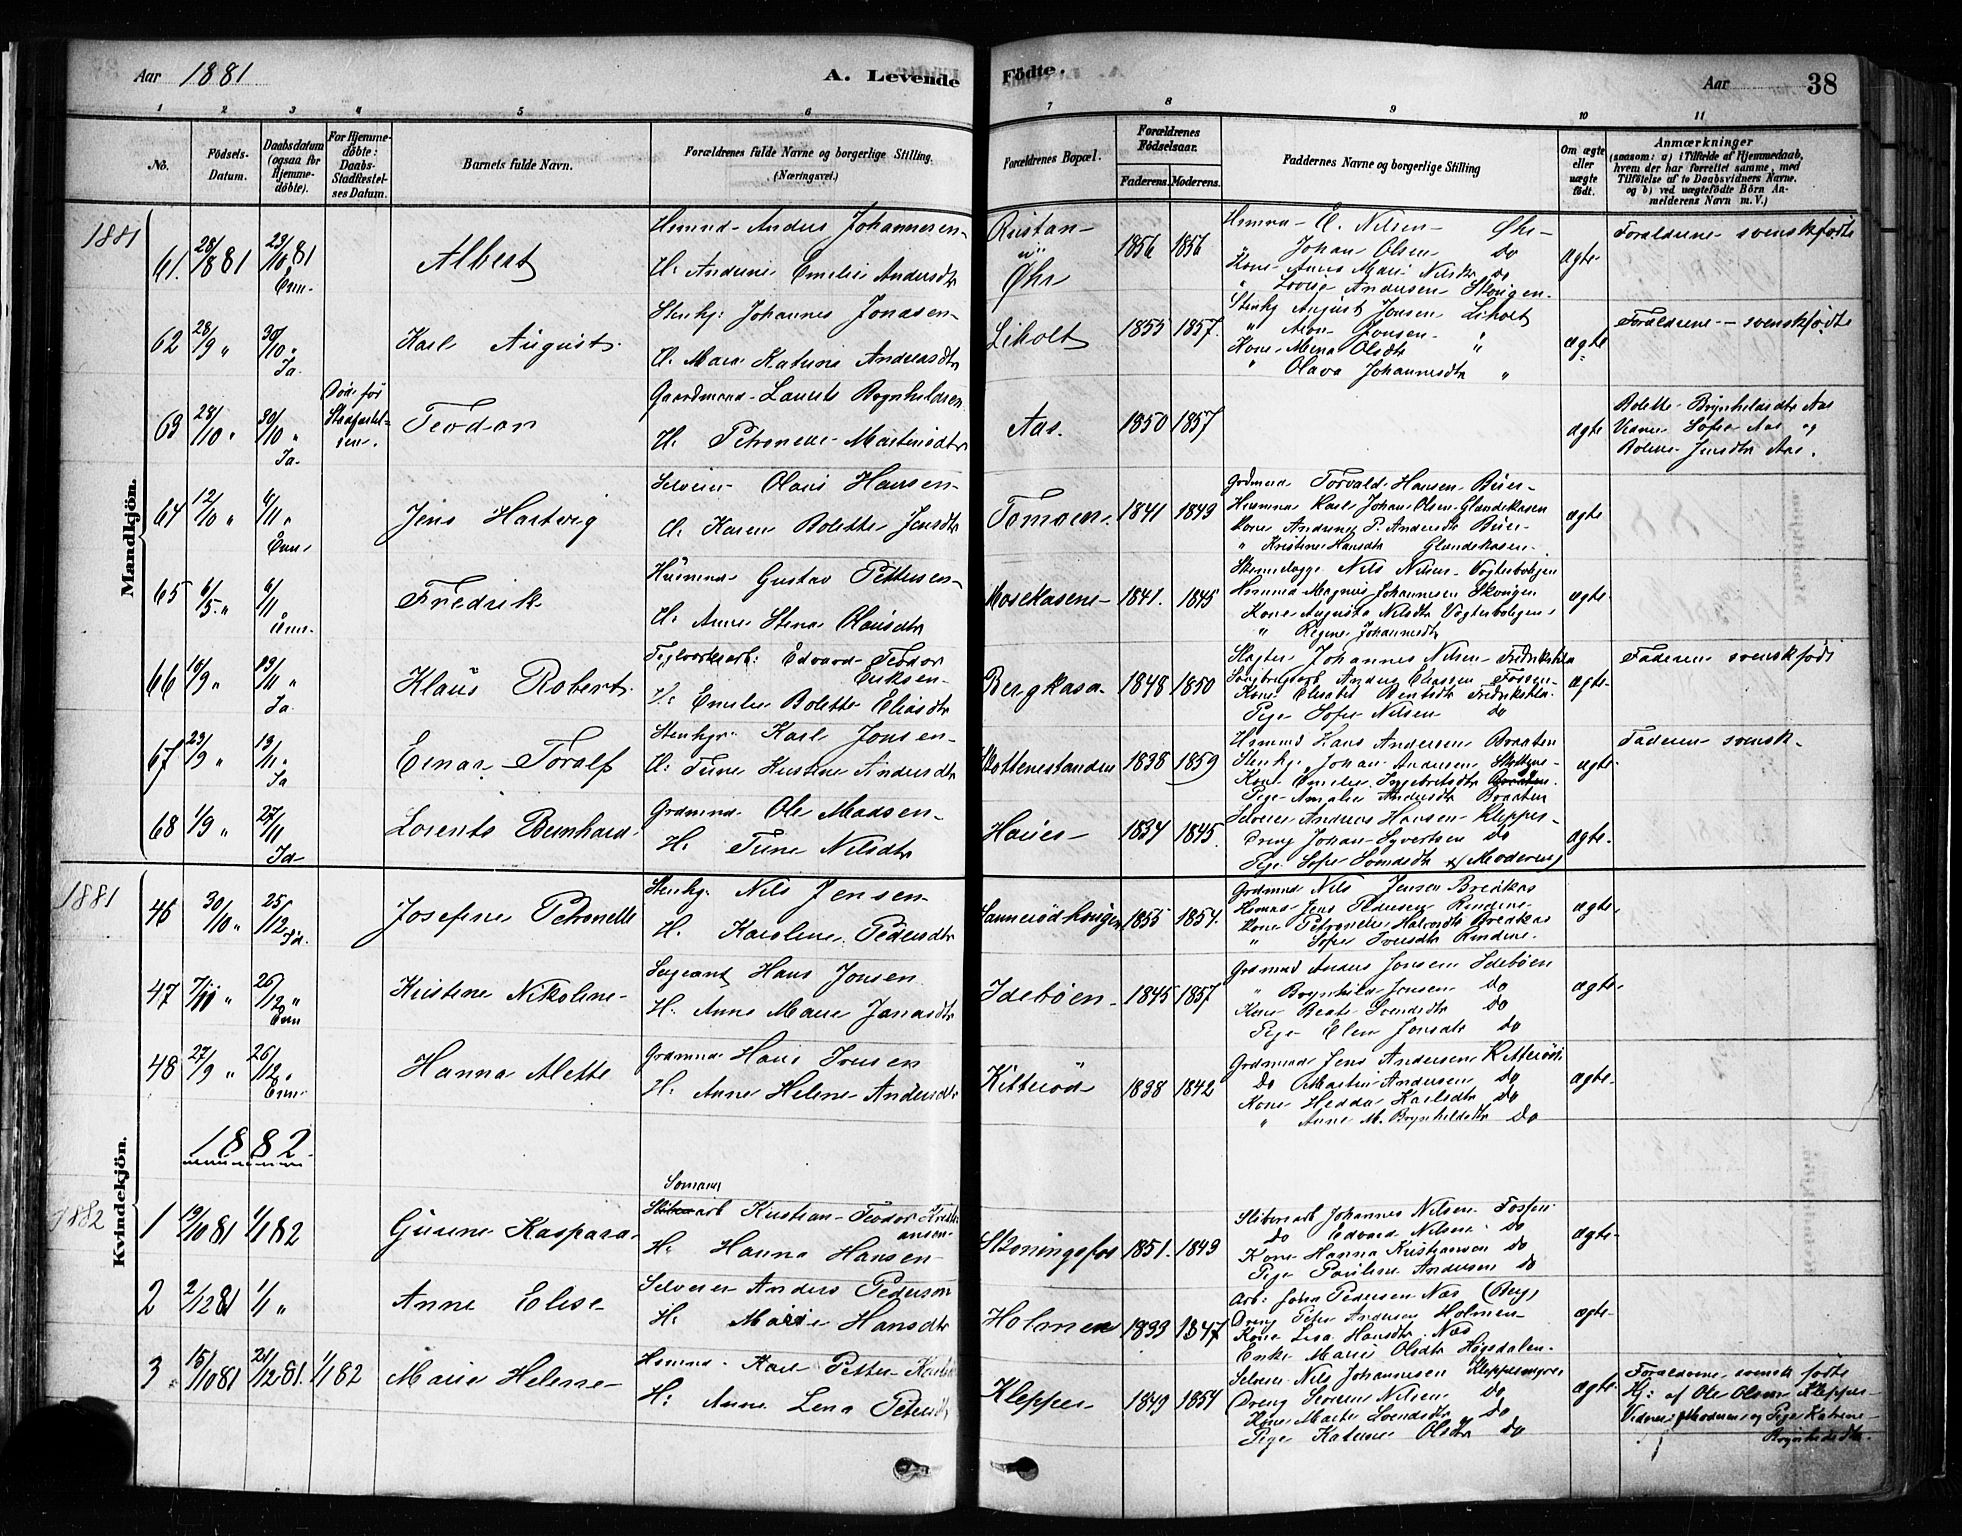 Aar 1881
A. Levende
Fødte.
Aar 38
1 2 3 4 5 6 7 8 9 10 11
No.
Fødsels-
Datum.
Daabsdatum
(ogsaa for
Hjemme-
døbte).
For Hjemme-
døbte:
Daabs-
Stadfæstel-
ses Datum.
Barnets fulde Navn.
Forældrenes fulde Navne og borgerlige Stilling.
(Næringsvei.)
Forældrenes Bopæl.
Forældrenes
Fødselsaar.
Faderens. Moderens.
Faddernes Navne og borgerlige Stilling
Om ægte
eller
uægte
født.
Anmærkninger
(saasom: a) i Tilfælde af Hjemmedaab,
hvem der har forrettet samme, med
Tilføielse af to Daabsvidners Navne,
og b) ved uægtefødte Børn An-
melderens Navn m. V.)
Mandkjön.
1881
61. 28/8 81 23/10 81 Albert
Anders Johannesen
H. Emilie Andersdtr
Øhr 1856 1856
E. Nilsen Øhr
" Johan Olsen do
Kone Anne Mari Nilsdtr do
" Lovise Andersen Skovigen
ægte
Forældrene svenskfødte
62 28/9 " 30/10 " Id. Karl August
Stenhg: Johannes Jonasen
H. Maria Katrina Andreasdtr
Liholt 1855 1857.
Stenhg August Jonsen Liholt
" Aron Jonsen "
Kone Mena Olsdtr "
" Olava Johannesdtr "
ægte
Forældrene - svenskfødte
63 28/10 " 30/10 " Id. Død før Stadfæstel-
sen. Teodor
Gaardmand Laurits Brynhildsen
H. Petronelle Martinsdtr
Aas. 1850 1857
ægte
Bolette Brynhildsdtr Aas
Vidner Sofie Aas og
Bolene Jensdtr Aas.
64 12/10 " 6/11 " Enn. Jens Hartvig
Selveier Olaus Hansen
H. Karen Bolette Jensdtr
Tomoen. 1841 1849
Grdmnd. Torvald Hansen Buer
Husmnd Karl Johan Olsen Glendekasen
Kone Andrine P. Andersdtr Buer
" Kristine Hansdtr Glendekasen
ægte
65 6/5 " 6/11 " Enn. Fredrik
Husmnd Gustav Pettersen
H. Anne Stena Olausdtr
Mosekasene 1841. 1845
Nils Nilsen Vogterboligen
Magnus Johannesen Skovigen
Kone Augusta Nilsdtr Vogterboligen
" Regine Johannesdtr
ægte
66 16/9 " 13/11 " Id. Klaus Robert
Teglværksarb: Edvard Teodor
Eriksen
H. Emilie Bolette Eliasdtr
Bergkasa 1848 1850
Slagter Johannes Nilsen Fredrikshld
Anders Eliassen Fossen
Kone Elisabet Berntsdtr Fredrikshld.
Pige Sofie Nilsen do
ægte
Faderen svenskfødt
67 23/9 " 13/11 " Id Einar Toralf
Stenhgr: Karl Jonsen
H. Tine Kristine Andersdtr
Skottenestanden 1838 1859
Hsmnd Hans Andersen Braaten
Stenhg. Johan Andersen Skottene
Kone Emilie Ingebretsdtr Braaten
Pige Amalie Andersdtr Braaten
ægte
Faderen svensk
68 1/9 " 27/11 Id Lorents Bernhard
Grdmnd. Ole Madsen
H. Tine Nilsdtr
Hauer 1834 1845.
Selveier Andreas Hansen Klepper
Dreng Johan Syvertsen do
Pige Sofie Svendsdtr og Moderen
ægte
Kvindekjön.
1881
46 30/10 " 25/12 Id. Josefine Petronelle
Stenhg. Nils Jensen
H. Karoline Pedersdtr
1855 1854.
Grdmnd Nils Jensen Bredkas
Hsmnd Jens Pedersen Rindene
Kone Petronelle Halvorsdtr Bredkas
" Sofie Iversdtr Rindene.
ægte
47 7/11 " 26/12 " Enn Kristine Nikoline
Sergeant Hans Jonsen
H. Anne Marie Jonasdtr
Idebøen 1845 1857
Grdmnd Anders Jonsen Idebøen
" Brynhild Jonsen do
Kone Beate Svendsdtr do
Pige Elen Jonsdtr do
ægte
48 27/9 " 26/12 " Enn. Hanna Alette
Grdmnd Hans Iversen
H. Anne Helene Andersdtr
Kitterød 1838 1842
Grdmnd Jens Andersen Kitterød
do Martin Andersen do
Kone Hedda Karlsdtr do
" Anne M. Brynhildsdtr do
ægte
1882
1882
1 19/10 81 1/1 82 Gusine Kaspara
Somand
Sliberarb Kristian Teodor Kristi-
ansen
H: Hanna Hansen
Skoningsfos 1851. 1849
Sliberarb Johannes Nilsen Fossen
do Edvard Nilsen do
Kone Hanna Kristiansen do
Pige Pauline Andersen do
ægte
2 2/12 81 1/1 " Anne Elise
Selveier Anders Pederson
H: Marie Hansdtr
Holmen 1833 1847
Arb: Johan Pedersen Næs (Berg)
Dreng Peter Andersen Holmen
Kone Lisa Hansdtr Næs
Enke Marie Olsdtr Høgsdalen
ægte
3 15/10 81 21/12 81. 1/1 82 Marie Helene
Hsmnd. Karl Petter
H: Anne Lena Petersdtr
Klepper 1849 1854
Selveier Nils Johannesen Kleppermyren
Dreng Severin Nilsen do
Kone Marte Svendsdtr do
Pige Katrine Olsdtr do
ægte
Forældrene svensk fødte
Hj: af Ole Olsen Klepper
Vidner: Moderen og Pige Katrine
Brynhildsdtr.